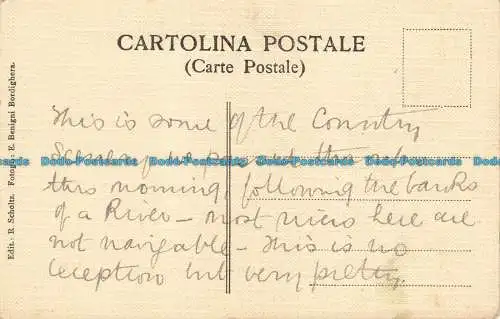 CARTOLINA POSTALE
(Carte Postale)
Edit.: R. Scholtz. Fotogr.: E. Benigni Bordighera.
This is some of the Country
we
this morning, following the banks
of a River – most rivers here are
not navigable – This is no
exception but very pretty
Dodo-Postcards Dodo-Postcards Dodo-Postcards Dodo-Postcards